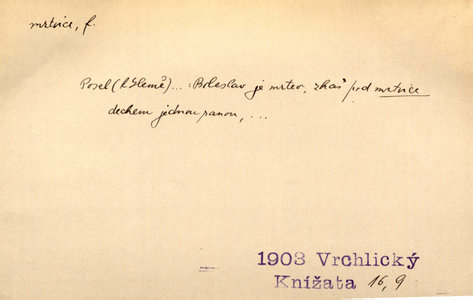 mrtvice, f.
Posel (k Hemě)... : Boleslav je mrtev, zhas' pod mrtvice
dechem jednou ranou, ...
1903 Vrchlický
Knížata 16, 9